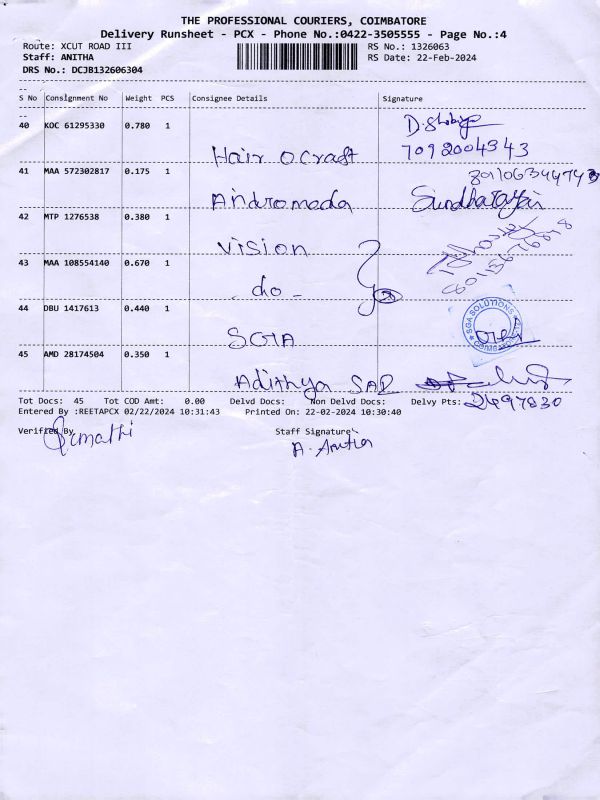 THE PROFESSIONAL COURIERS, COIMBATORE
Delivery Runsheet - PCX - Phone No.:0422-3505555 - Page No.:4
Route: XCUT ROAD III
RS No.: 1326063
Staff: ANITHA
RS Date: 22-Feb-2024
DRS No.: DCJB132606304
S No Consignment No Weight PCS Consignee Details Signature
40 KOC 61295330 0.780 1
D. Shobiya
7092004343
Hair O Craft
41 MAA 572302817 0.175 1
Andromada
42 MTP 1276538 0.380 1
Vision
43 MAA 108554140 0.670 1
-do-
44 DBU 1417613 0.440 1
SGA SOLUTIONS
SGIA
45 AMD 28174504 0.350 1
Adithya SAP
Tot Docs: 45 Tot COD Amt: 0.00 Delvd Docs: Non Delvd Docs: Delvy Pts:
2497830
Entered By :REETAPCX 02/22/2024 10:31:43 Printed On: 22-02-2024 10:30:40
Verified By Staff Signature
A. Anitha